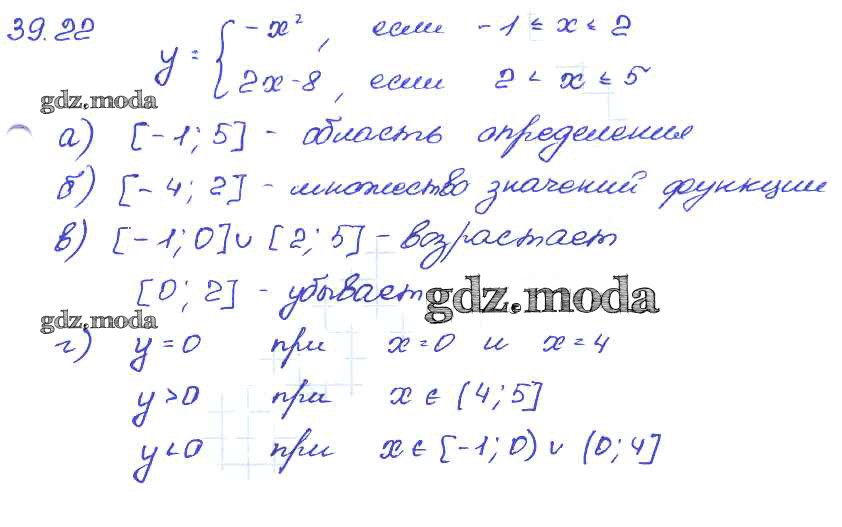 39.22
y = { -x², если -1 ≤ x ≤ 2
2x-8, если 2 < x ≤ 5
gdz.moda
а) [-1; 5] - область определения
б) [-4; 2] - множество значений функции
в) [-1; 0] ∪ [2; 5] - возрастает
[0; 2] - убывает
gdz.moda
gdz.moda
г) y = 0 при x = 0 и x = 4
y > 0 при x ∈ (4; 5]
y < 0 при x ∈ [-1; 0) ∪ (0; 4]